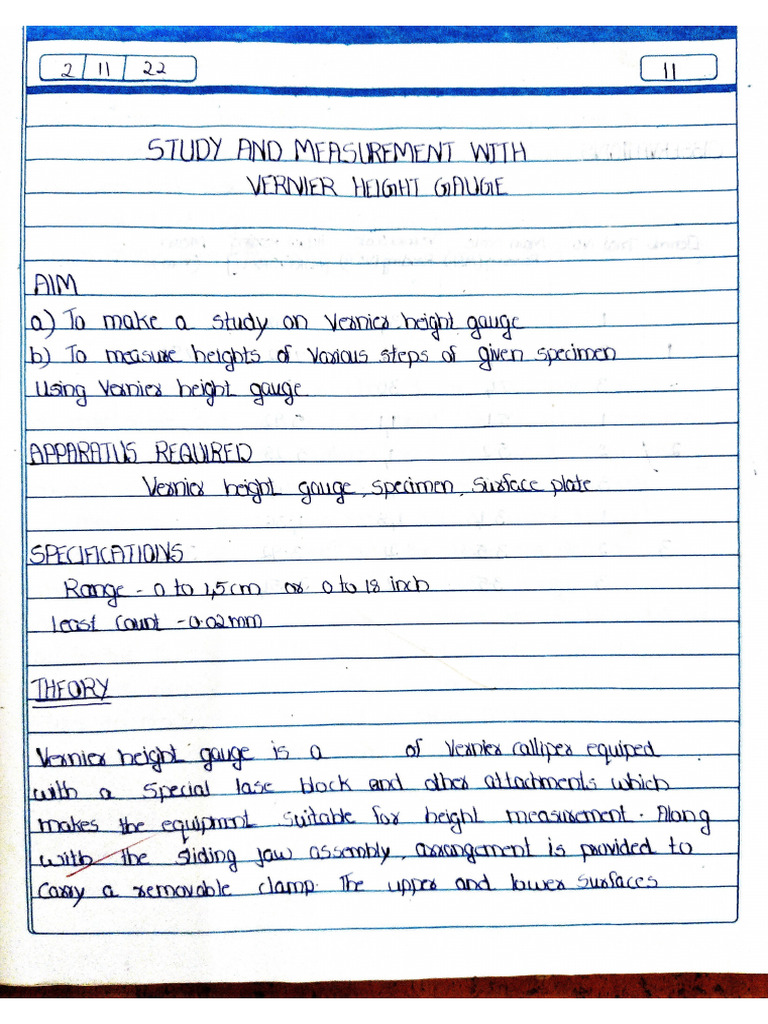 2 11 22
11
STUDY AND MEASUREMENT WITH
VERNIER HEIGHT GAUGE
AIM
a) To make a study on Vernier height gauge
b) To measure heights of various steps of given specimen
Using Vernier height gauge.
APPARATUS REQUIRED
Vernier height gauge, specimen, surface plate
SPECIFICATIONS
Range - 0 to 1,5cm or 0 to 18 inch
Least Count - 0.02mm
THEORY
Vernier height gauge is a of Vernier calliper equiped
with a special lase block and other attachments which
makes the equipment suitable for height measurement. Along
with the sliding jaw assembly, arrangement is provided to
carry a removable clamp. The upper and lower surfaces